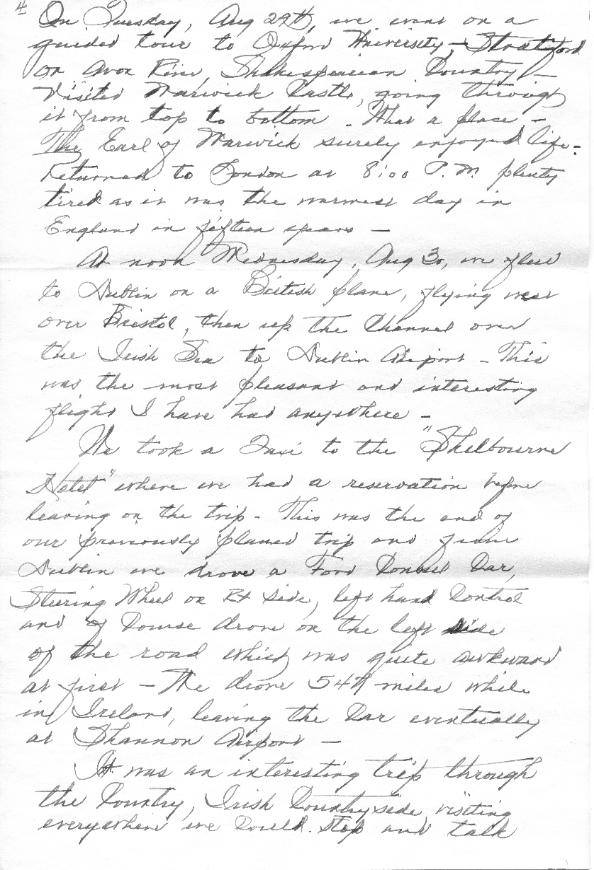 4
On Tuesday, Aug 29th, we went on a
guided tour to Oxford University, - Stratford
on Avon River, Shakespearian Country -
Visited Warwick Castle, going through
it from top to bottom - What a place -
The Earl of Warwick surely enjoyed life -
Returned to London at 8:00 P.M. plenty
tired as it was the warmest day in
England in fifteen years -
At noon Wednesday, Aug 30, we flew
to Dublin on a British plane, flying west
over Bristol, then up the Channel over
the Irish Sea to Dublin Airport - This
was the most pleasant and interesting
flight I have had anywhere -
We took a Taxi to the "Shelbourne
Hotel" where we had a reservation before
leaving on the trip - This was the end of
our previously planed trip and from
Dublin we drove a Ford Consul Car,
Steering Wheel on Rt Side, left hand Control
and of Course drove on the left side
of the road which was quite awkward
at first - We drove 547 miles while
in Ireland, leaving the Car eventually
at Shannon Airport -
It was an interesting trip through
the Country, Irish Countryside, visiting
everywhere we Could stop and talk